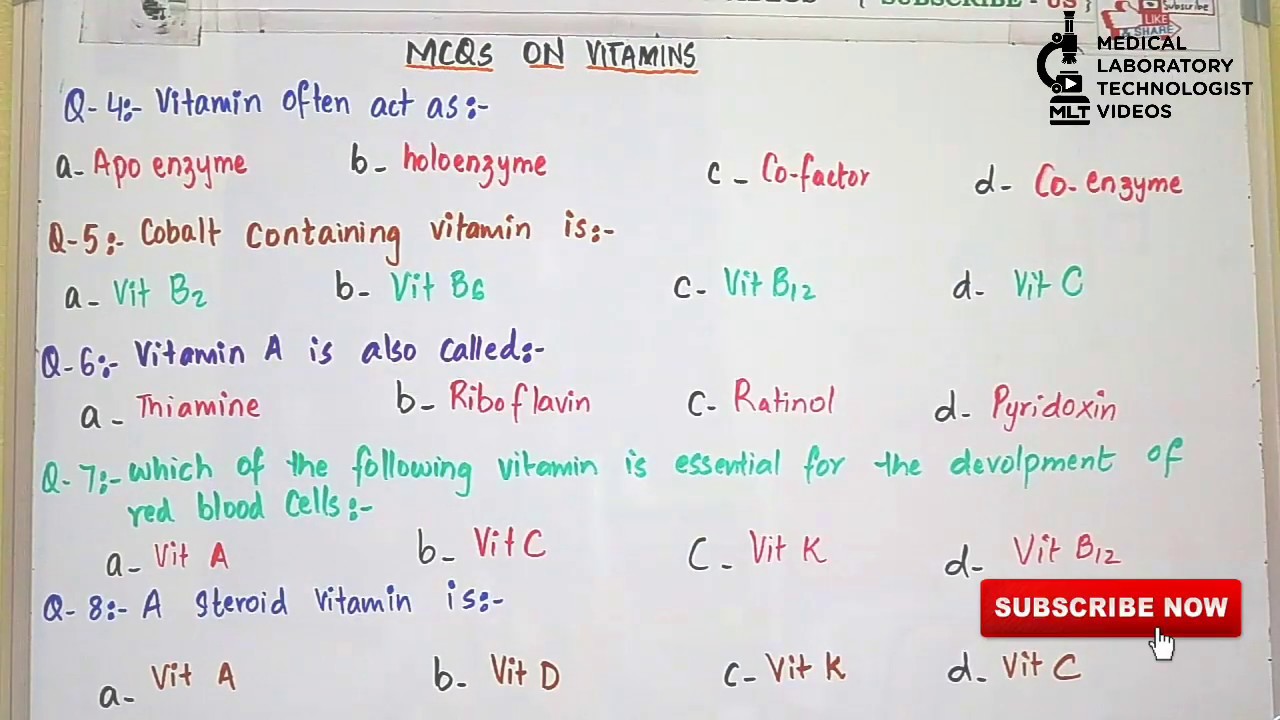 SUBSCRIBE - US
Subscribe
LIKE
& SHARE
MEDICAL
LABORATORY
TECHNOLOGIST
VIDEOS
MLT
MCQS ON VITAMINS
Q- 4:- Vitamin often act as:-
a- Apo enzyme b- holoenzyme c- Co-factor d- Co-enzyme
Q-5:- Cobalt containing vitamin is:-
a- Vit B2 b- Vit B6 c- Vit B12 d- Vit C
Q-6:- Vitamin A is also called:-
a- Thiamine b- Riboflavin c- Ratinol d- Pyridoxin
Q-7:- which of the following vitamin is essential for the devolpment of
red blood Cells:-
a- Vit A b- Vit C C- Vit K d- Vit B12
Q- 8:- A Steroid Vitamin is:-
a- Vit A b- Vit D c- Vit K d- Vit C
SUBSCRIBE NOW